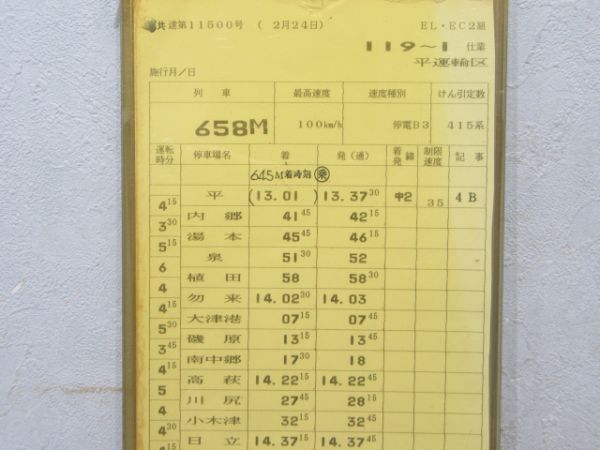 共速第11500号 （2月24日） EL・EC2組
119～1仕業
施行月／日 平運輸区
列車 最高速度 速度種別 けん引定数
658M 100km/h 停電B3 415系
運転時分 停車場名 着 発（通） 着発線 制限速度 記事
645M着時刻 乗
平 (13.01) 13.37 30 中2 35 4B
4 15
内郷 41 45 42 15
3 30
湯本 45 45 46 15
5 15
泉 51 30 52
6
植田 58 58 30
4
勿来 14.02 30 14.03
4 15
大津港 07 15 07 45
5 30
磯原 13 15 13 45
3 45
南中郷 17 30 18
4 15
高萩 14.22 15 14.22 45
5
川尻 27 45 28 15
4
小木津 32 15 32 45
4 30
日立 14.37 15 14.37 45